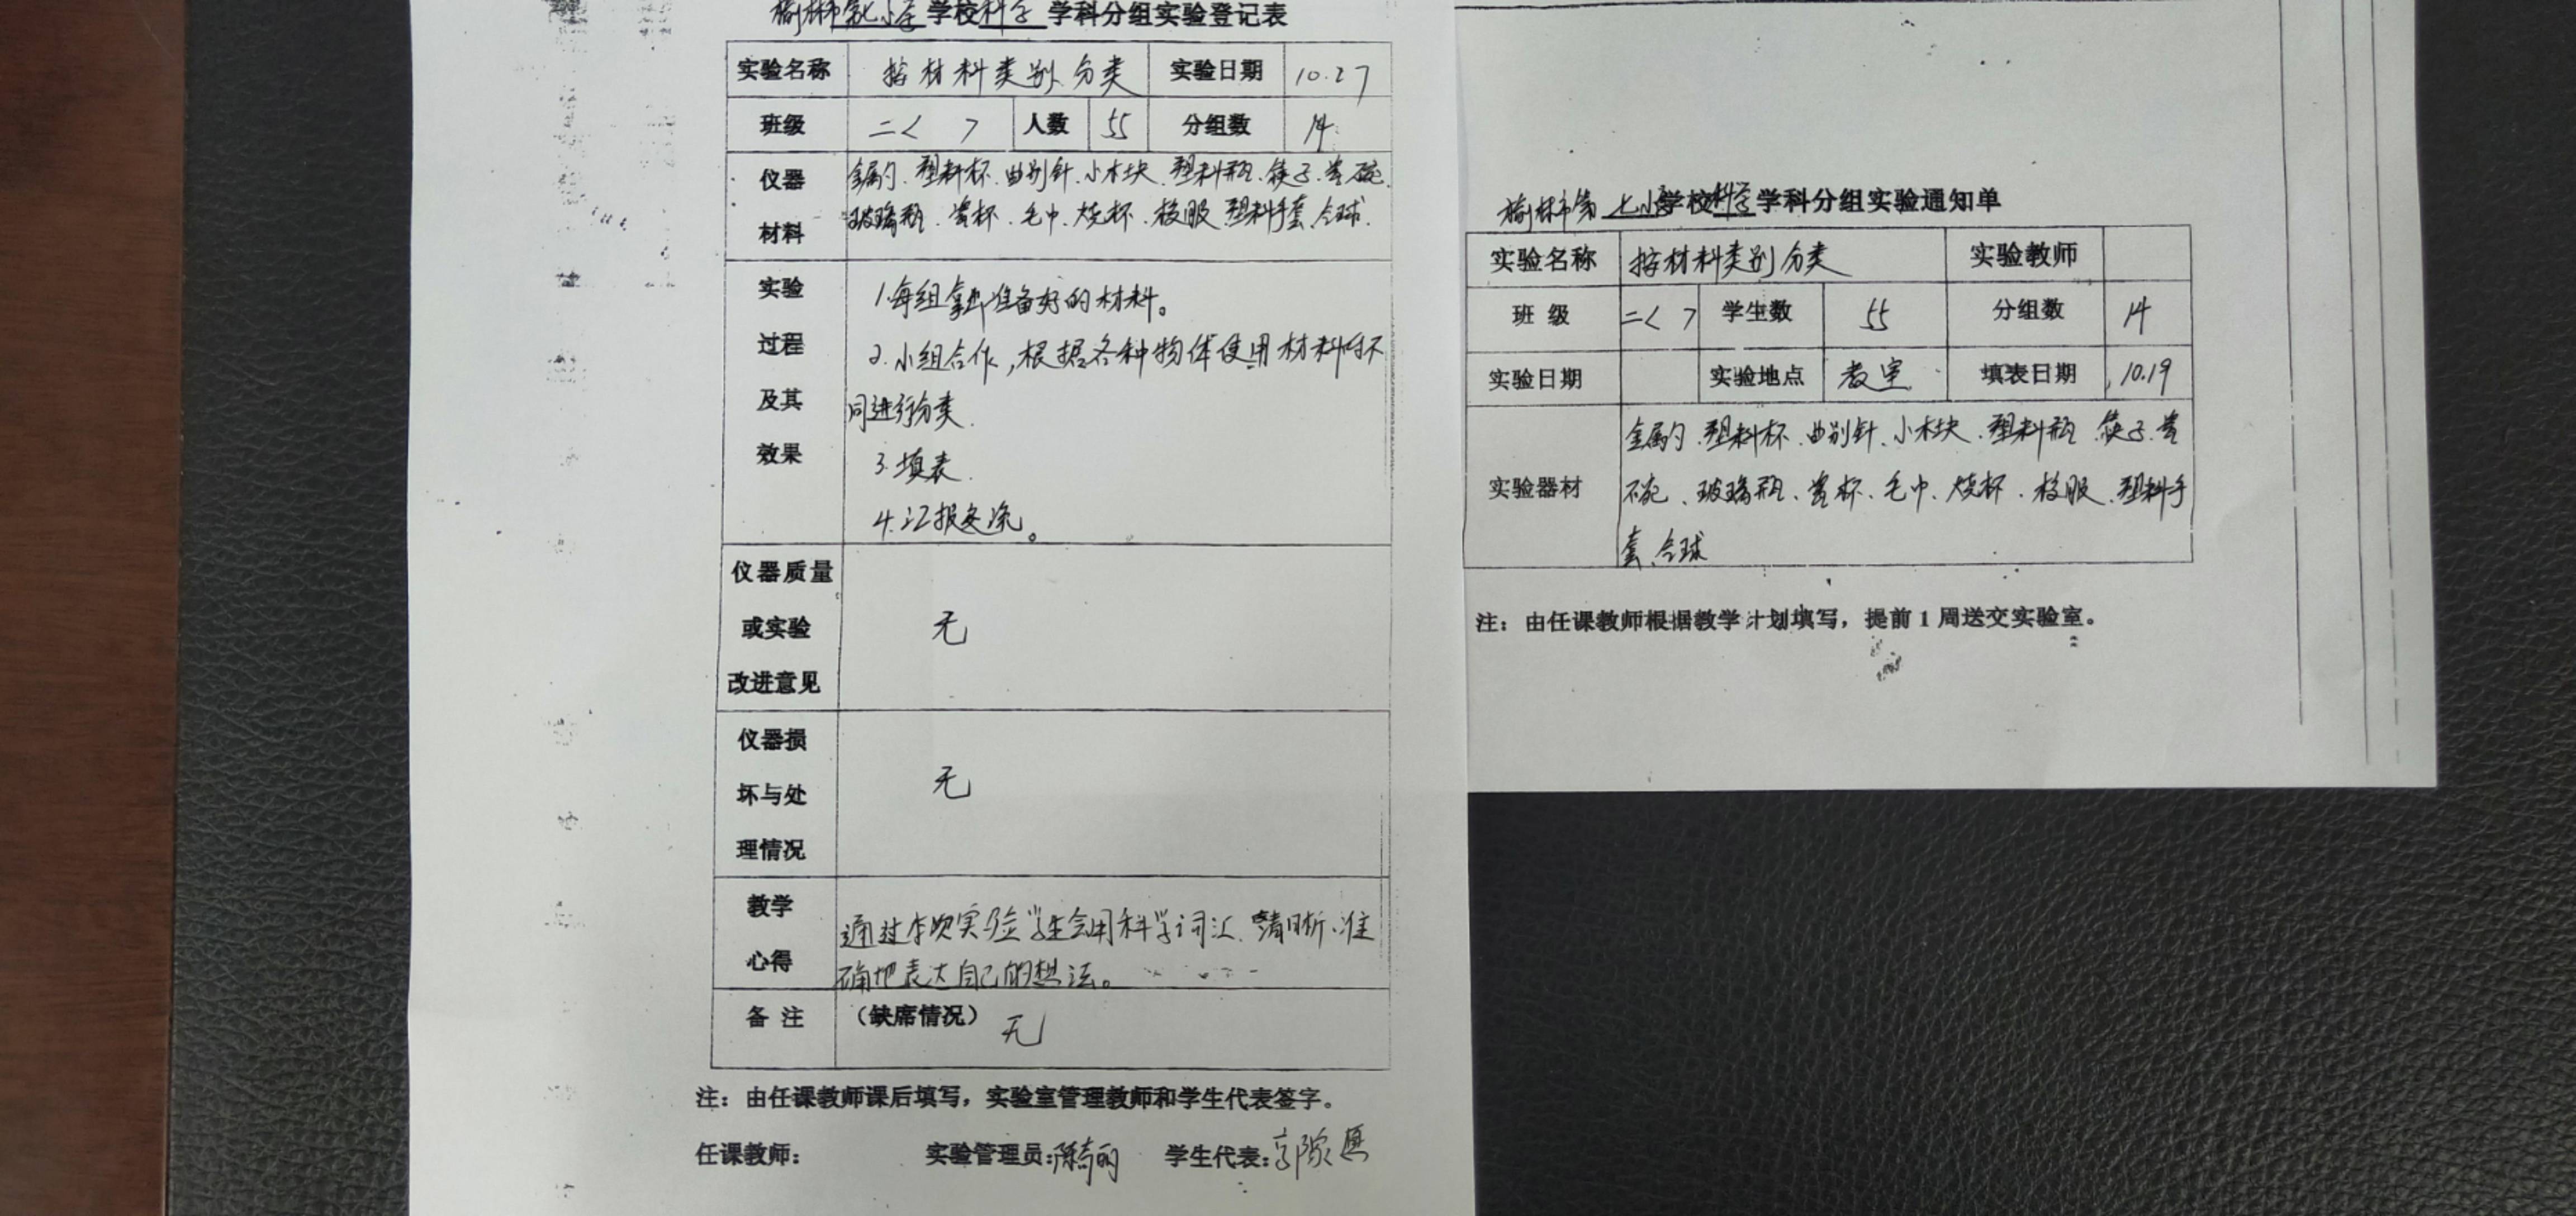 榆林市第七小学 学校 科学 学科分组实验登记表
实验名称 按材料类别分类 实验日期 10.27
班级 二< > 人数 55 分组数 14
仪器 材料 金属勺、塑料杯、曲别针、小木块、塑料瓶、筷子、瓷碗、
玻璃瓶、瓷杯、毛巾、烧杯、校服、塑料手套、仓球.
实验 过程 及其 效果 1.每组拿出准备好的材料。
2.小组合作,根据各种物体使用材料的不
同进行分类.
3.填表.
4.汇报交流。
仪器质量
或实验 无
改进意见
仪器损
坏与处 无
理情况
教学 通过本次实验学生会用科学词汇、清晰、准
心得 确地表达自己的想法。
备 注 (缺席情况) 无
注:由任课教师课后填写,实验室管理教师和学生代表签字。
任课教师: 实验管理员:陈奇丽 学生代表:
榆林市第七小学校科学学科分组实验通知单
实验名称 按材料类别分类 实验教师
班 级 二< > 学生数 55 分组数 14
实验日期 实验地点 教室 填表日期 10.19
金属勺、塑料杯、曲别针、小木块、塑料瓶、筷子、瓷
实验器材 碗、玻璃瓶、瓷杯、毛巾、烧杯、校服、塑料手
套、仓球
注:由任课教师根据教学计划填写,提前1周送交实验室。